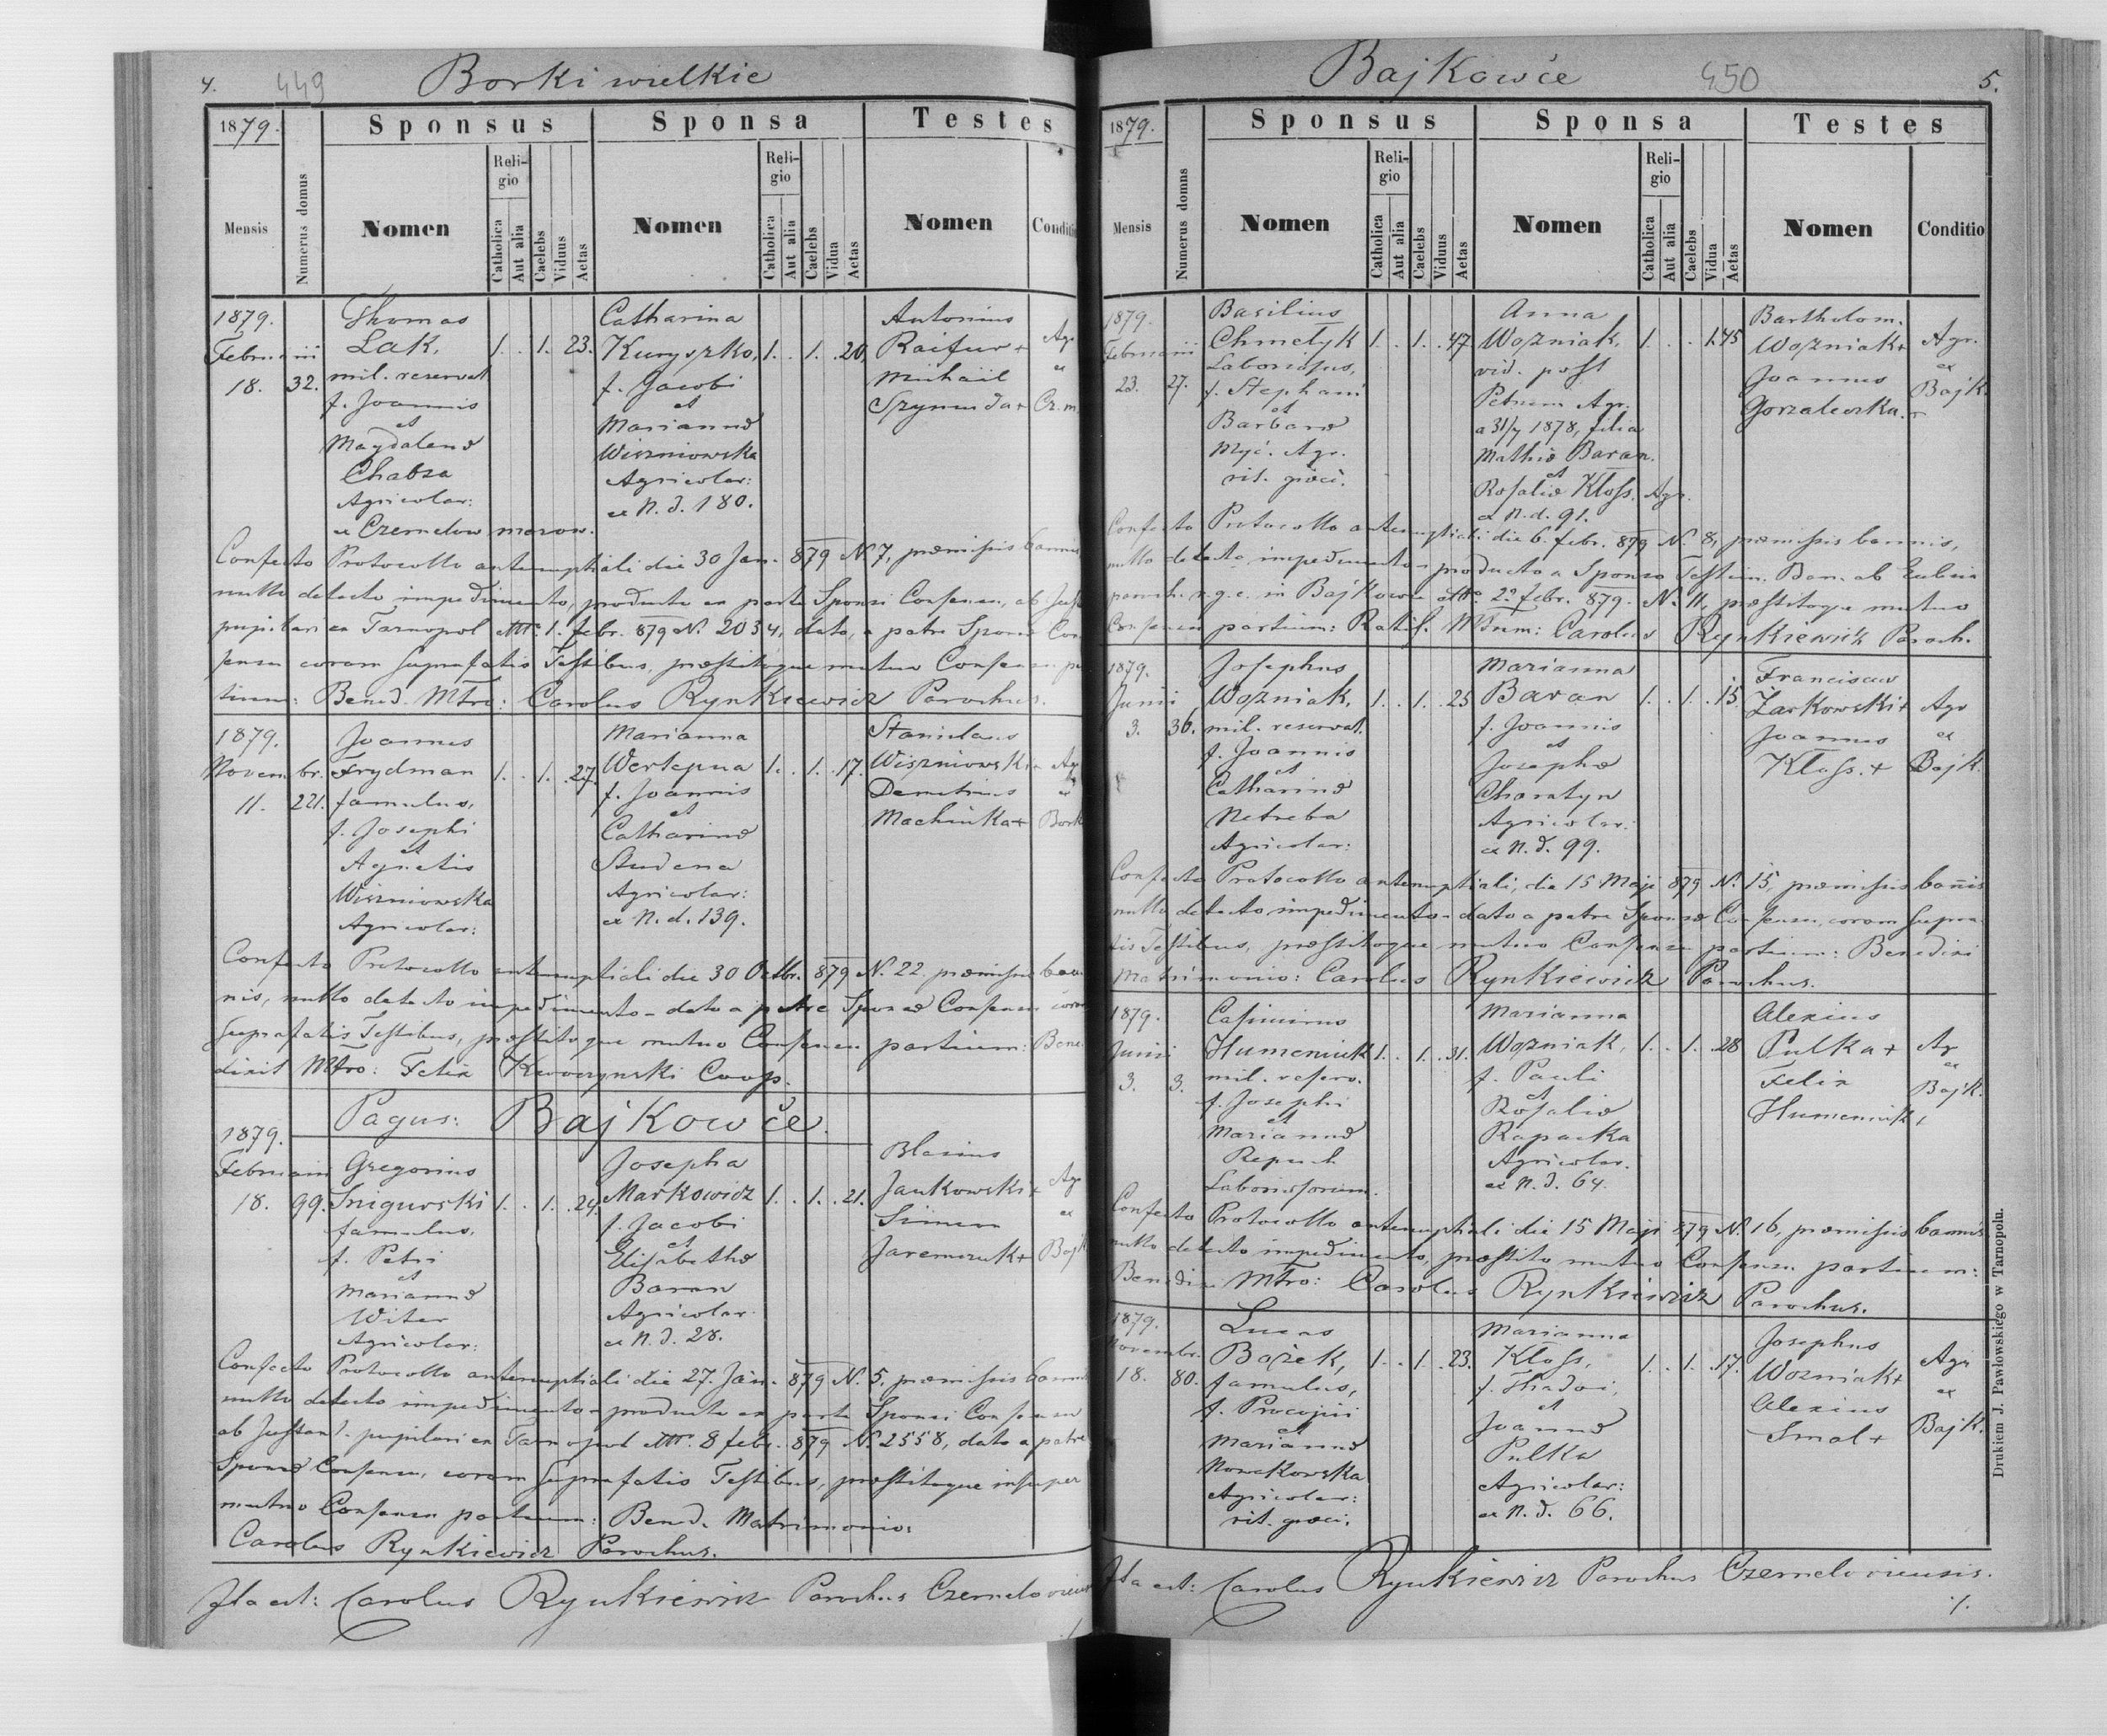 4. 449 Borki wielkie
1879. Sponsus Sponsa Testes
Mensis Numerus domus Nomen Religio Catholica Aut alia Caelebs Viduus Aetas Nomen Religio Catholica Aut alia Caelebs Vidua Aetas Nomen Conditio
1879. Thomas Catharina Antonius
Februarii Lak, 1. . 1. 23. Kuryszko, 1. . 1. 20. Raifur + Agr.
18. 32. mil. reservat f. Jacobi Michaël ex
f. Joannis et Szymuda + Cz. m.
et Mariannæ
Magdalenæ Wiszniowska
Chabza Agricolar:
Agricolar: ex N. d. 180.
ex Czemelow mazow.
Confecto Protocollo antenuptiali die 30 Jan. 879 N. 7, præmissis bannis
nullo detecto impedimento, producto ex parte Sponsi Consensu, ab
pupilari ex Tarnopol 1. febr. 879 N. 2034, dato, a patre Sponsæ Con
sensu coram suprafatis Testibus, præstitoque mutuo Consensu par
tium: Bened. Mtro: Carolus Rynkiewicz Parochus.
1879. Joannes Marianna Stanislaus
Novembr. Frydman 1. . 1. 27. Wertepna 1. . 1. 17. Wiszniowski + Agr
11. 221. famulus, f. Joannis Demetrius ex
f. Josephi et Machinka + Bork
et Catharinæ
Agnetis Studena
Wiszniowska Agricolar:
Agricolar: ex N. d. 139.
Confecto Protocollo antenuptiali die 30 Octbr. 879 N. 22. præmissis ban
nis, nullo detecto impedimento - dato a patre Sponsæ Consensu coram
suprafatis Testibus, præstitoque mutuo Consensu partium: Bene
dixit Mtro: Felix Coop.
Pagus: Bajkowce.
1879. Gregorius Josepha Blasius
Februarii Snigurski 1. . 1. 24. Markowicz 1. . 1. 21. Jankowski + Agr
18. 99. famulus, f. Jacobi Simeon ex
f. Petri et Jaremczuk + Bajk
et Elisabethæ
Mariannæ Baran
Witer Agricolar.
Agricolar: ex N. d. 28.
Confecto Protocollo antenuptiali die 27. Jan. 879 N. 5. præmissis bannis
nullo detecto impedimento - producto ex parte Sponsi Consensu
ab Instant. pupilari ex Tarnopol 8 febr. 879 N. 2558, dato a patre
Sponsæ Consensu, coram suprafatis Testibus, præstitoque insuper
mutuo Consensu partium: Bened. Matrimonio:
Carolus Rynkiewicz Parochus.
Ita est: Carolus Rynkiewicz Parochus
Bajkowce 450 5.
1879. Sponsus Sponsa Testes
Mensis Numerus domus Nomen Religio Catholica Aut alia Caelebs Viduus Aetas Nomen Religio Catholica Aut alia Caelebs Vidua Aetas Nomen Conditio
1879. Basilius Anna Bartholom.
Februarii Chmelyk 1. . 1. . 47 Wozniak, 1. . . 1. 45 Wozniak + Agr.
23. 27. Laboriosus, vid. post Joannes ex
f. Stephani Petrum Agr. Gorzalewska. Bajk.
et a 31/7 1878, filia
Barbaræ Mathiæ Baran.
Myć. Agr. et
rit. græci. Rosaliæ Kloss. Agr.
ex N. d. 91.
Confecto Protocollo antenuptiali die 6. febr. 879 N. 8, præmissis bannis,
nullo detecto impedimento - producto a Sponso Testim. Ban. ab
paroch. r. g. c. in Bajkowce 22 febr. 879. N. 11, præstitoque mutuo
Consensu partium: Ratif. Mtnum: Carolus Rynkiewicz Paroch.
1879. Josephus Marianna Franciscus
Junii Wozniak, 1. . 1. . 25 Baran 1. . 1. . 15. Żarkowski + Agr
3. 36. mil. reservat. f. Joannis Joannes ex
f. Joannis et Kloss. + Bajk.
et Josephæ
Catharinæ Charatyn
Netreba Agricolar:
Agricolar: ex N. d. 99.
Confecto Protocollo antenuptiali, die 15 Maji 879 N. 15, præmissis bannis
nullo detecto impedimento - dato a patre Sponsæ Consensu, coram supra
tis Testibus, præstitoque mutuo Consensu partium: Benedixi
Matrimonio: Carolus Rynkiewicz Parochus.
1879. Casimirus Marianna Alexius
Junii Humeniuk 1. . 1. . 31. Wozniak, 1. . 1. . 28 Pulka + Agr
3. 3. mil. reserv. f. Pauli Felix ex
f. Josephi et Humeniuk + Bajk.
et Rosaliæ
Mariannæ Rapacka
Repuch Agricolar.
Laboriosorum. ex N. d. 64.
Confecto Protocollo antenuptiali die 15 Maji 879 N. 16, præmissis bannis
nullo detecto impedimento, præstito mutuo Consensu partium:
Benedixi Mtro: Carolus Rynkiewicz Parochus.
1879. Lucas Marianna Josephus
Novembr. Bożek, 1. . 1. . 23. Kloss, 1. . 1. . 17. Wozniak + Agr
18. 80. famulus, f. Thadæi, Alexius ex
f. Procopii et Smal + Bajk.
et Joannæ
Mariannæ Pulka
Nowakowska Agricolar:
Agricolar: ex N. d. 66.
rit. græci.
Ita est: Carolus Rynkiewicz Parochus Czemeloviensis.
./.
Drukiem J. Pawłowskiego w Tarnopolu.